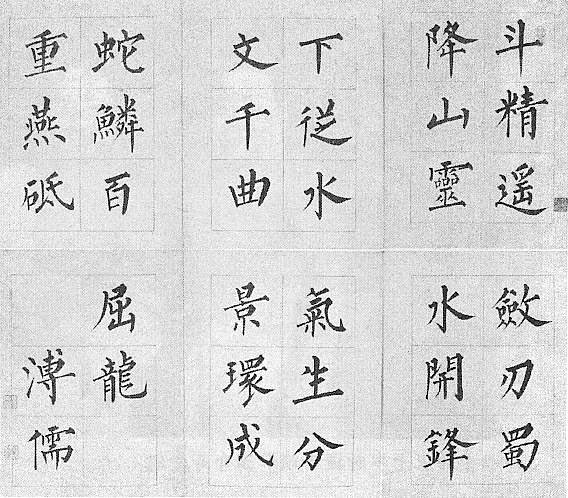 斗精遙
降山靈
下從水
文千曲
蛇鱗百
重燕砥
斂刃蜀
水開鋒
氣生分
景環成
屈龍
溥儒